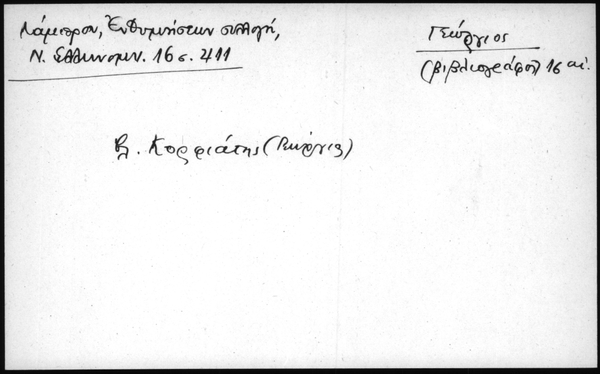 Λάμπρου, Ἐνθυμήσεων συλλογή,
Ν. Ἑλληνομν. 16 σ. 211
Γεώργιος
(βιβλιογράφος) 16 αἰ.
Βλ. Κορριάτης (Γεώργιος)